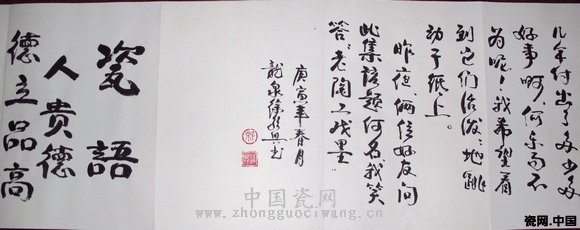 几年付出了多少多
好事啊，何乐而不
为呢！我希望看
到它们活泼泼地跳
动于纸上。
昨夜，俩位好友问
此集该题何名我笑
答“老陶工戏墨”
庚寅年春月
龍泉徐朝兴书
瓷語
人贵德
德立品高
中国瓷网
www.zhongguociwang.cn
瓷网.中国